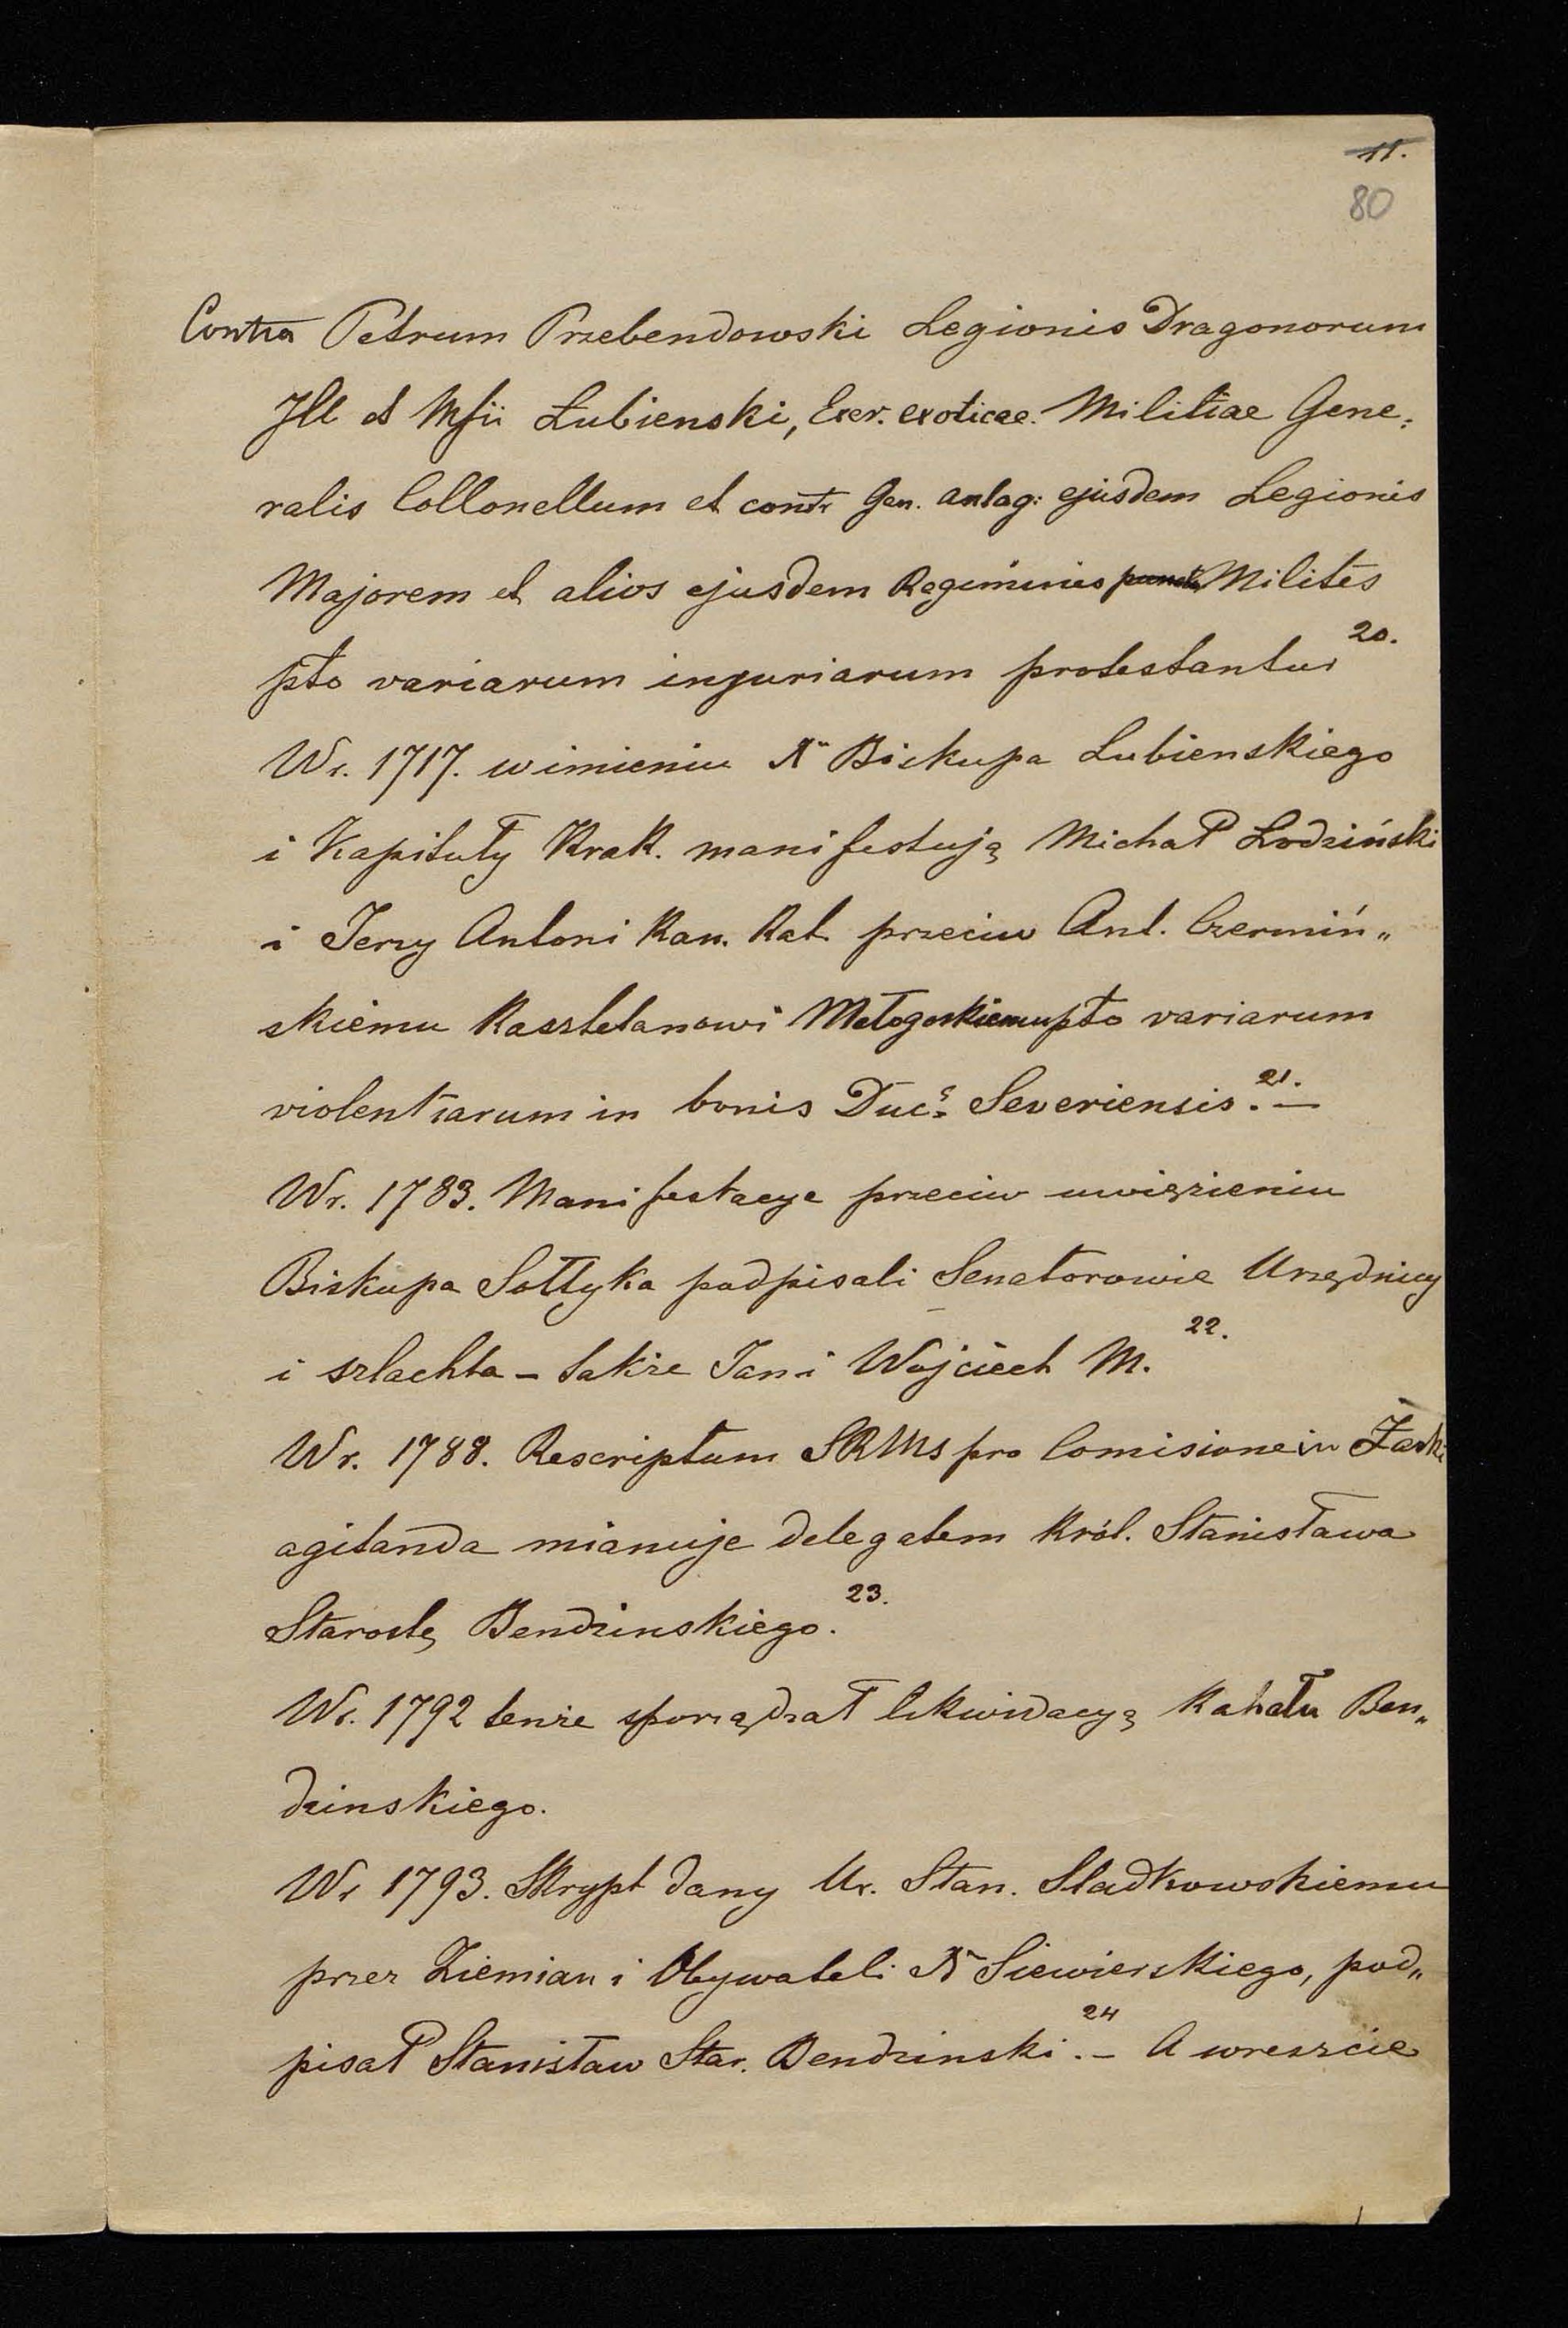 11.
80
Contra Petrum Przebendowski Legionis Dragonorum
Ill et Mfii Łubienski, Exer. exoticae. Militiae Gene:
ralis Collonellum et contr Gen. antag: ejusdem Legionis
Majorem et alios ejusdem Regiminis Milites
pto variarum injuriarum protestantur 20.
Wr. 1717. w imieniu X Biskupa Lubienskiego
i Kapituły Krak. manifestują Michał Lodziński
i Jerzy Antoni Kan. Kat. przeciw Ant. Czermiń„
skiemu Kasztelanowi Małogoskiemu pto variarum
violentiarum in bonis Duc.s Severiensis. 21. —
Wr. 1783. Manifestacye przeciw uwięzieniu
Biskupa Sołtyka podpisali Senatorowie Urzędnicy
i szlachta – także Jan i Wojciech M. 22.
Wr. 1788. Rescriptum SRMs pro Comisione in Żarki
agitanda mianuje delegatem Król. Stanisława
Starostę Bendzinskiego. 23.
Wr. 1792 tenże sporządzał likwidacyą Kahału Ben„
dzinskiego.
Wr 1793. Skrypt dany Ur. Stan. Sladkowskiemu
przez Ziemian i Obywateli X Siewierskiego, pod„
pisał Stanisław Star. Bendzinski. 24 – A wreszcie